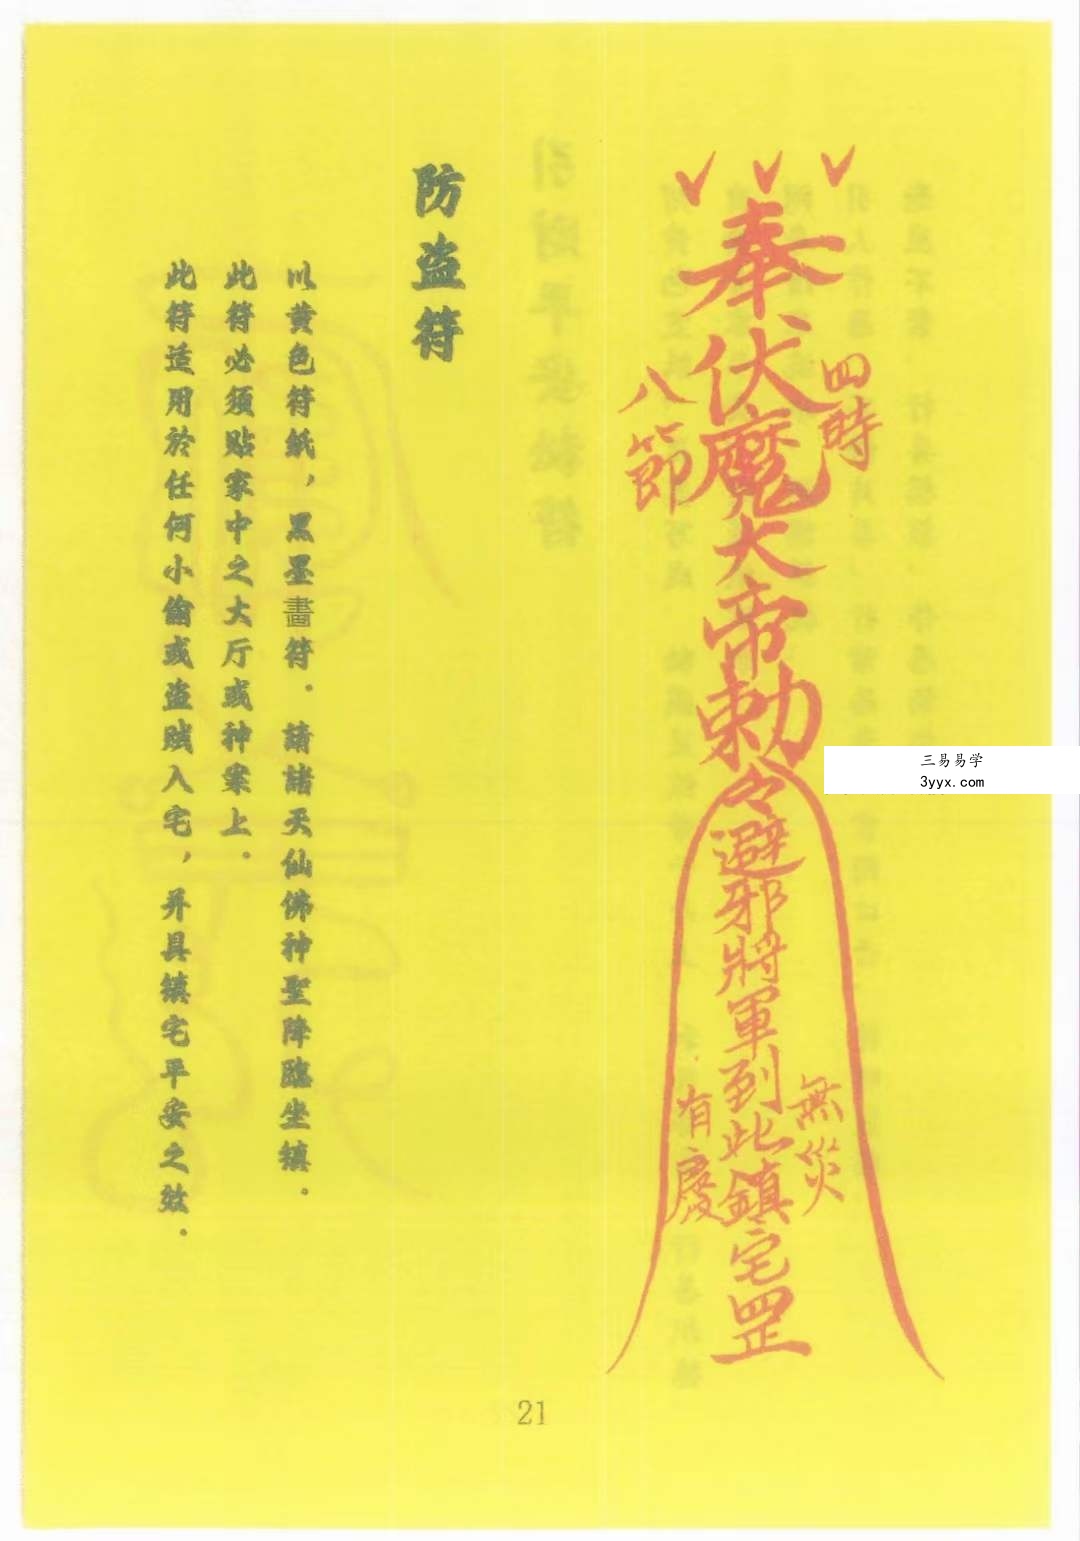 奉伏魔大帝勅令避邪將軍到此鎮宅罡
四時
八節
無災
有慶
防盗符
以黄色符紙，黑墨畵符．請諸天仙佛神聖降臨坐鎮．
此符必须贴家中之大厅或神案上．
此符适用於任何小偷或盗贼入宅，并具镇宅平安之效．
三易易学
3yyx.com
21